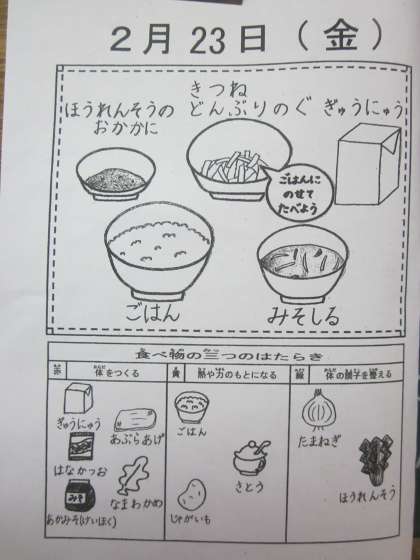 2月23日(金)
ほうれんそうの
おかかに
きつね
どんぶりのぐ
ぎゅうにゅう
ごはんに
のせて
たべよう
ごはん
みそしる
食べ物の三つのはたらき
赤 体をつくる
黄 熱や力のもとになる
緑 体の調子を整える
ぎゅうにゅう
あぶらあげ
はなかつお
みそ
あかみそ(けいほく)
なまわかめ
ごはん
さとう
じゃがいも
たまねぎ
ほうれんそう